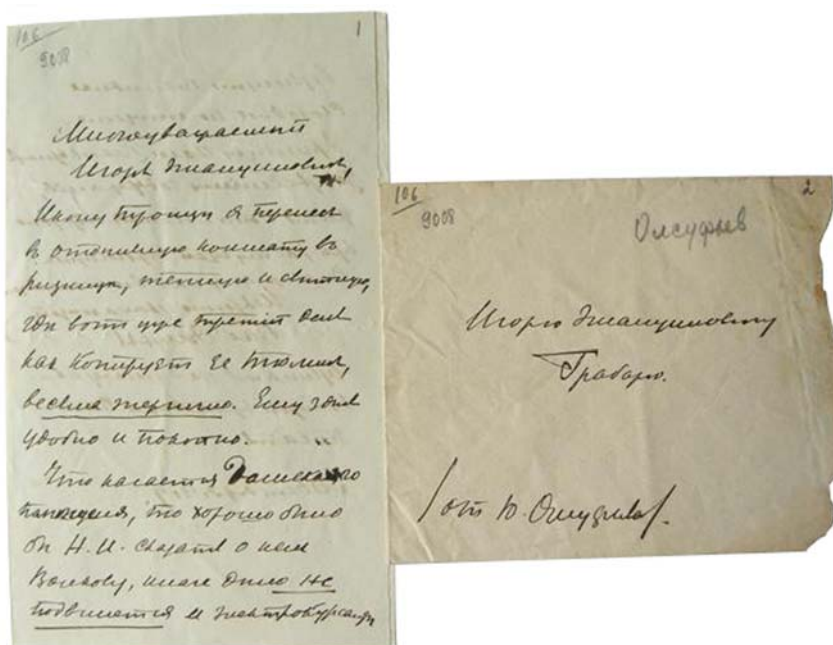 106
9008
1
Многоуважаемый
Игорь Эммануилович,
Икону Троицы я перенес
в отдельную комнату въ
ризницѣ, теплую и светлую,
гдѣ вотъ уже третiй день
какъ копируетъ ее Тюлин,
весьма энергично. Ему здѣсь
удобно и покойно.
Что касается
то хорошо было
бы Н. И. сказать о нем
Волкову, иначе дѣло не
подвинется и
106
9008
2
Олсуфьев
Игорю Эммануиловичу
Грабарю.
отъ Ю. Олсуфьева.